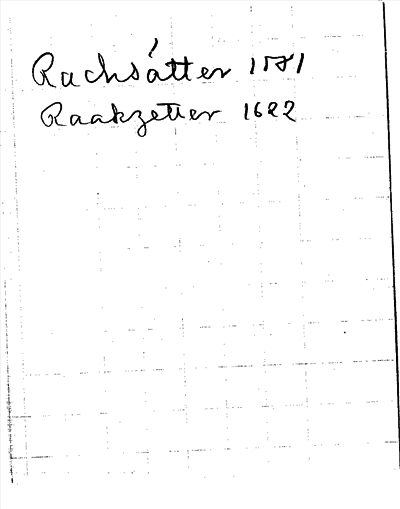 Rachsátter 1581
Raakzetter 1622